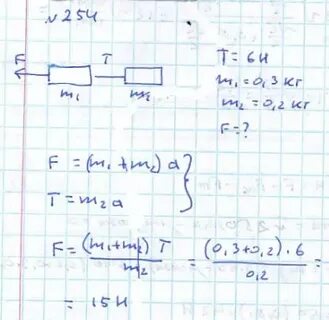 №254
F T
m₁ m₂
T = 6Н
m₁ = 0,3 кг
m₂ = 0,2 кг
F = ?
F = (m₁ + m₂) a
T = m₂ a
F = (m₁+m₂) T / m₂ = (0,3+0,2)·6 / 0,2 =
= 15 Н